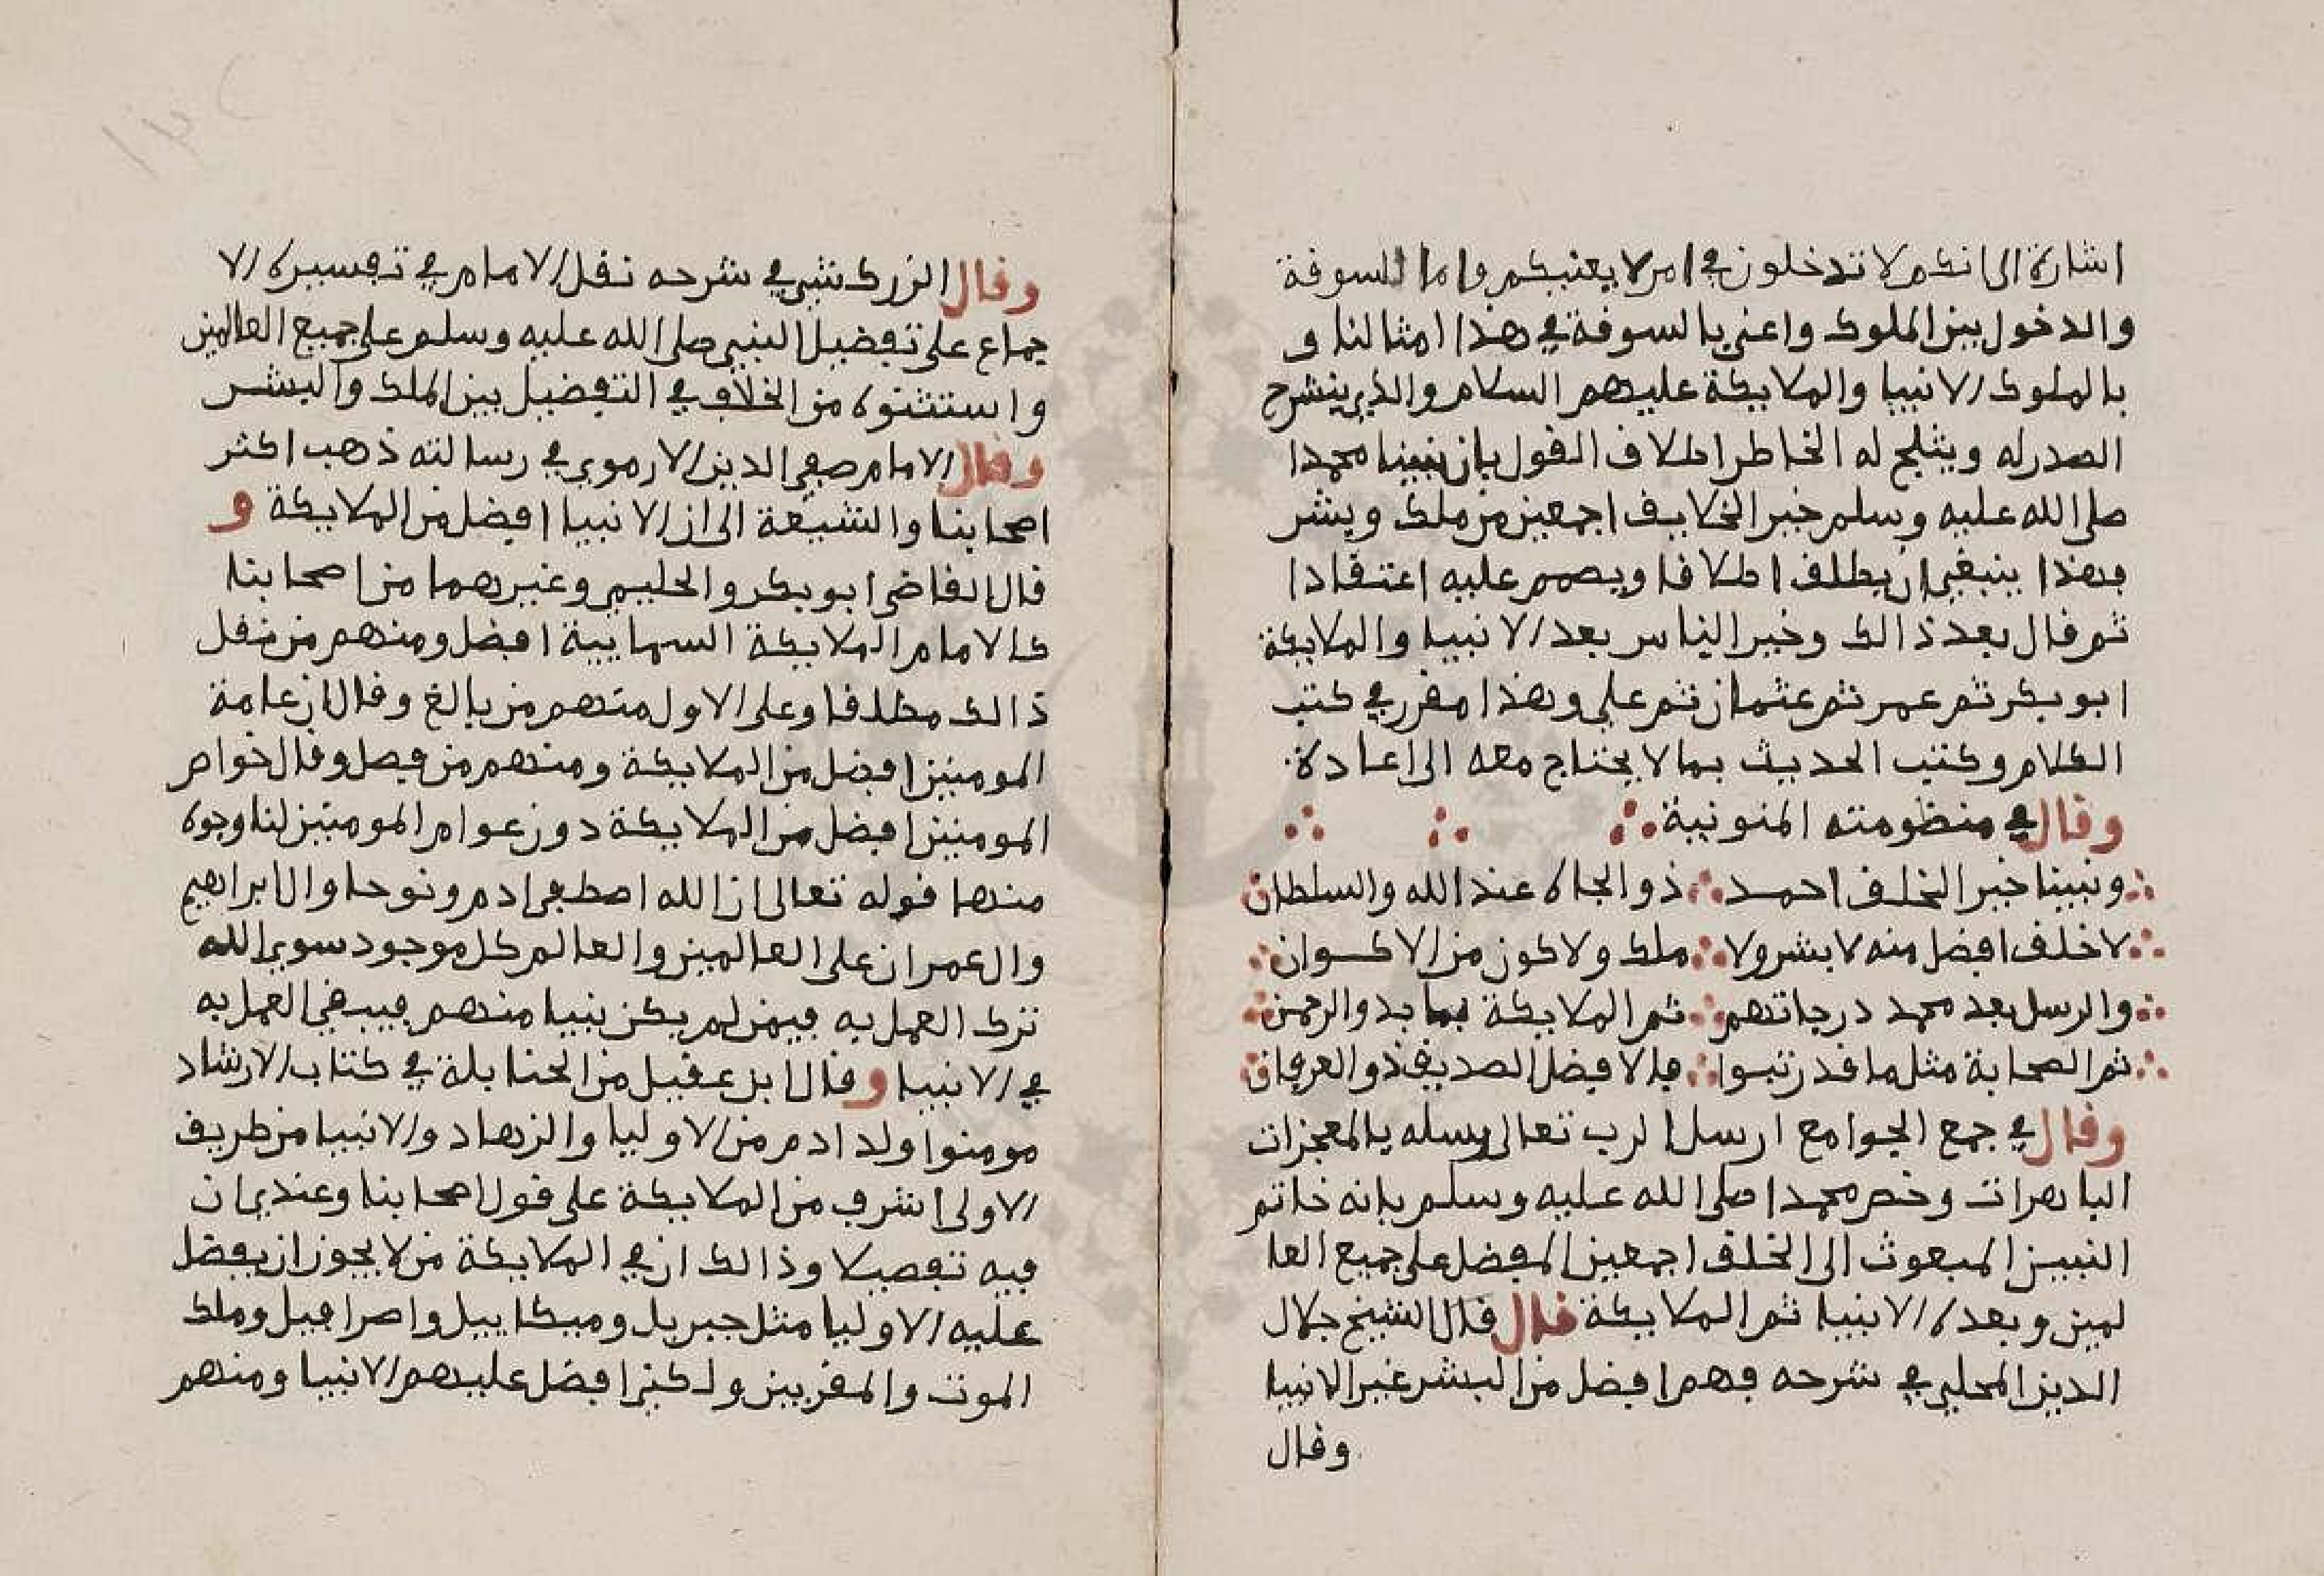 اشارة الى انكم لا تدخلون في امر لا يعنيكم وما للسوقة
والدخول بين الملوك واعني بالسوقة في هذا امثالنا و
بالملوك الانبيا والملايكة عليهم السلام والذي ينشرح
الصدر له ويثلج له الخاطر اطلاق القول بان نبينا محمدا
صلى الله عليه وسلم خير الخلايق اجمعين من ملك وبشر
وهذا ينبغي ان يطلق اطلاقا ويصمم عليه اعتقادا
ثم قال بعد ذالك وخير الناس بعد الانبيا والملايكة
ابو بكر ثم عمر ثم عثمان ثم علي وهذا مقرر في كتب
الكلام وكتب الحديث بما لا يحتاج معه الى اعادة
وقال في منظومته النونية
ونبينا خير الخلق احمد ذو الجاه عند الله والسلطان
لا خلق افضل منه لا بشر ولا ملك ولا كون من الاكوان
والرسل بعد محمد درجاتهم ثم الملايكة بما بدو الرحمن
ثم الصحابة مثل ما قد رتبوا فالافضل الصديق ذو العرفان
وقال في جمع الجوامع ارسل الرب تعالى رسله بالمعجزات
الباهرات وخص محمدا صلى الله عليه وسلم بانه خاتم
النبيين المبعوث الى الخلق اجمعين المفضل على جميع العا
لمين وبعده الانبيا ثم الملايكة قال قال الشيخ جلال
الدين المحلي في شرحه فهم افضل من البشر غير الانبيا
وقال
وقال الزركشي في شرحه نقل الامام في تفسيره الا
جماع على تفضيل النبي صلى الله عليه وسلم على جميع العالمين
واستثنوه من الخلاف في التفضيل بين الملك والبشر
وقال الامام صفي الدين الارموي في رسالته ذهب اكثر
اصحابنا والشيعة الى ان الانبيا افضل من الملايكة و
قال القاضي ابو بكر والحليمي وغيرهما من اصحابنا
كالامام الملايكة السمايية افضل ومنهم من نقل
ذالك مطلقا وعلى الاول منهم من بالغ وقال ان عامة
المومنين افضل من الملايكة ومنهم من فصل وقال خواص
المومنين افضل من الملايكة دون عوام المومنين لنا وجوه
منها قوله تعالى ان الله اصطفى ادم ونوحا وال ابراهيم
وال عمران على العالمين والعالم كل موجود سوى الله
ترك العمل به فيمن لم يكن نبيا منهم فيبقى العمل به
في الانبيا وقال ابن عقيل من الحنابلة في كتاب الارشاد
مومنوا ولد ادم من الاوليا والزهاد والانبيا من طريق
الاولى اشرف من الملايكة على قول اصحابنا وعندي ان
فيه تفصيلا وذالك ان في الملايكة من لا يجوز ان يفضل
عليه الاوليا مثل جبريل وميكاييل واصرافيل وملك
الموت والمقربين ولكن افضل عليهم الانبيا ومنهم